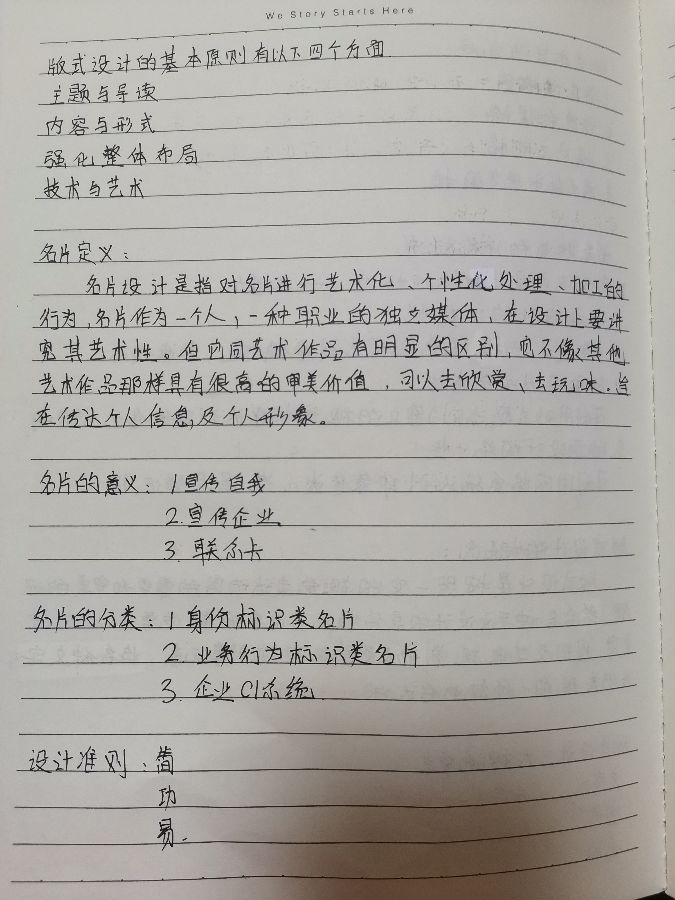 We Story Starts Here
版式设计的基本原则有以下四个方面
主题与导读
内容与形式
强化整体布局
技术与艺术
名片定义：
名片设计是指对名片进行艺术化、个性化处理、加工的
行为，名片作为一个人，一种职业的独立媒体，在设计上要讲
究其艺术性。但它同艺术作品有明显的区别，它不像其他
艺术作品那样具有很高的审美价值，可以去欣赏、去玩味。旨
在传达个人信息及个人形象。
名片的意义：1宣传自我
2.宣传企业
3.联系卡
名片的分类：1身份标识类名片
2.业务行为标识类名片
3.企业CI系统
设计准则：简
功
易.